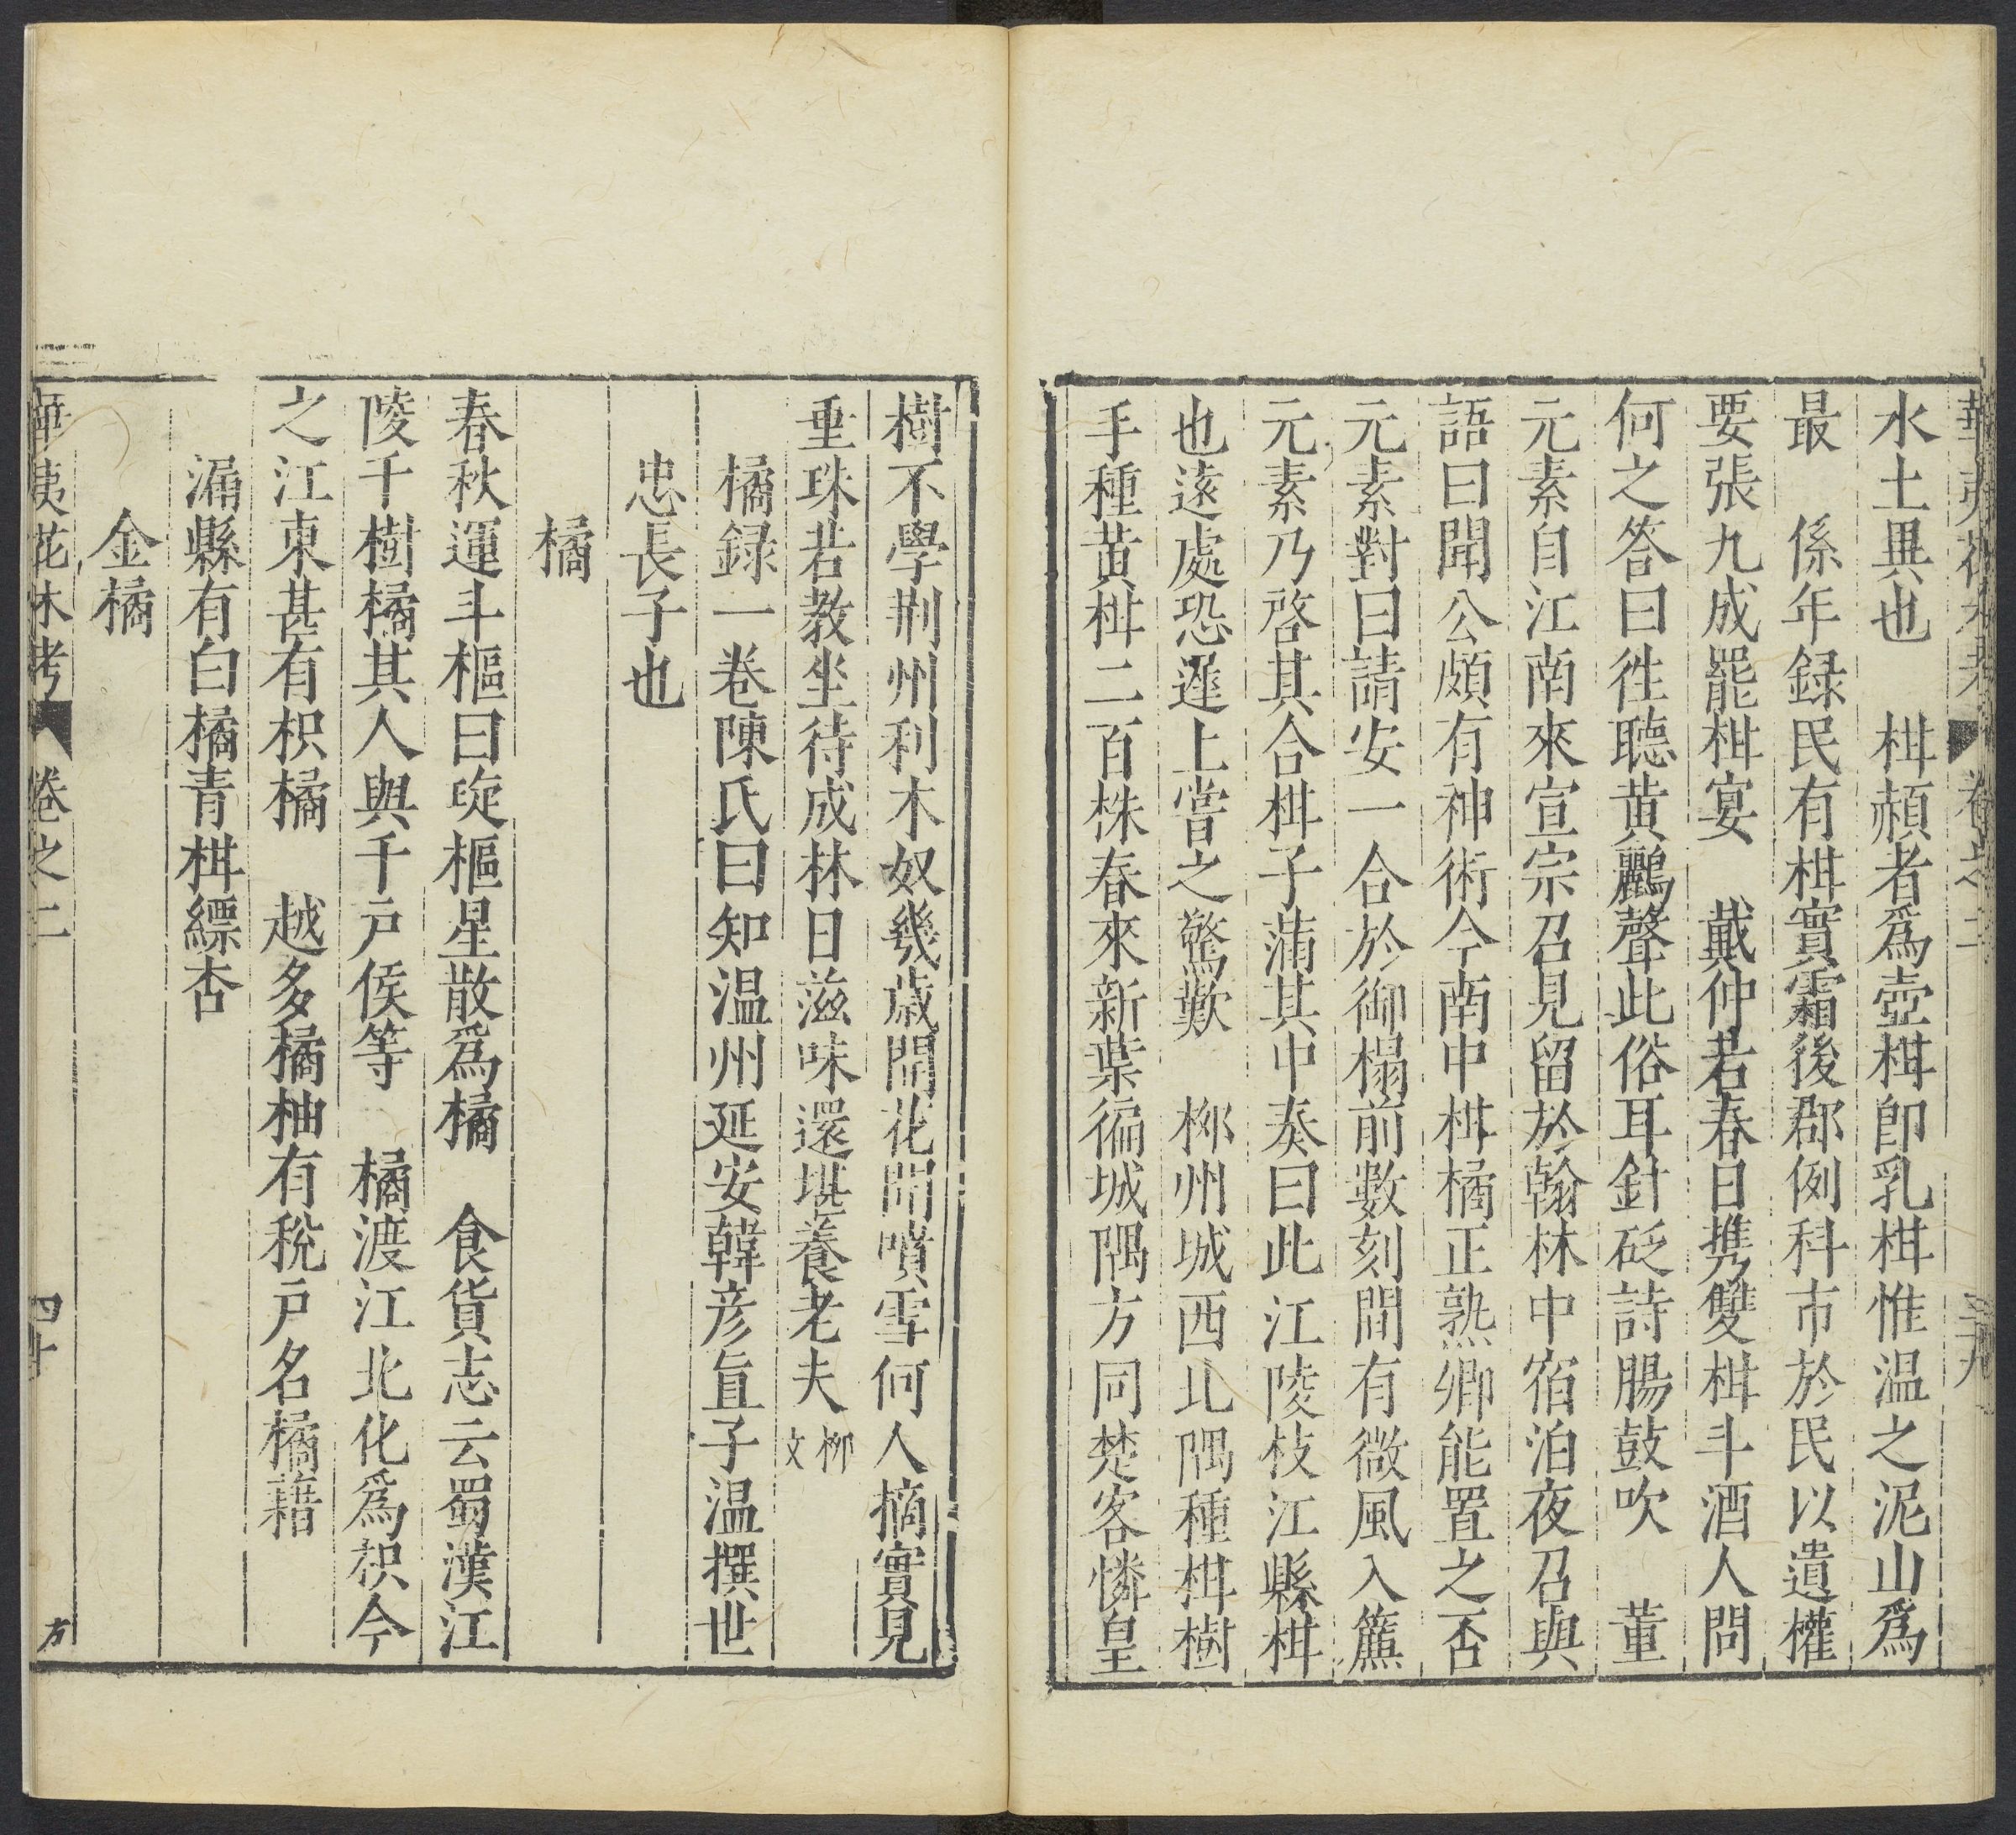 華夷花木考 卷之二 三十九
水土異也 柑頳者爲壺柑即乳柑惟温之泥山爲
最 係年録民有柑實霜後郡例科市於民以遺權
要張九成罷柑宴 戴仲若春日携雙柑斗酒人問
何之答曰徃聽黄鸝聲此俗耳針砭詩腸鼓吹 董
元素自江南來宣宗召見留於翰林中宿泊夜召與
語曰聞公頗有神術今南中柑橘正熟卿能置之否
元素對曰請安一合於御榻前數刻間有微風入簾
元素乃啓其合柑子蒲其中奏曰此江陵枝江縣柑
也逺處恐遲上嘗之驚歎 栁州城西北隅種柑樹
手種黄柑二百株春來新葉徧城隅方同楚客憐皇
樹不學荆州利木奴幾歲開花聞噴雪何人摘實見
垂珠若教坐待成林日滋味還堪養老夫 栁文
橘録一卷陳氏曰知温州延安韓彦直子温撰世
忠長子也
橘
春秋運斗樞曰琁樞星散爲橘 食貨志云蜀漢江
陵千樹橘其人與千户侯等 橘渡江北化爲枳今
之江東甚有枳橘 越多橘柚有稅户名橘藉
漏縣有白橘青柑縹杏
金橘
華夷花木考 卷之二 四十 方